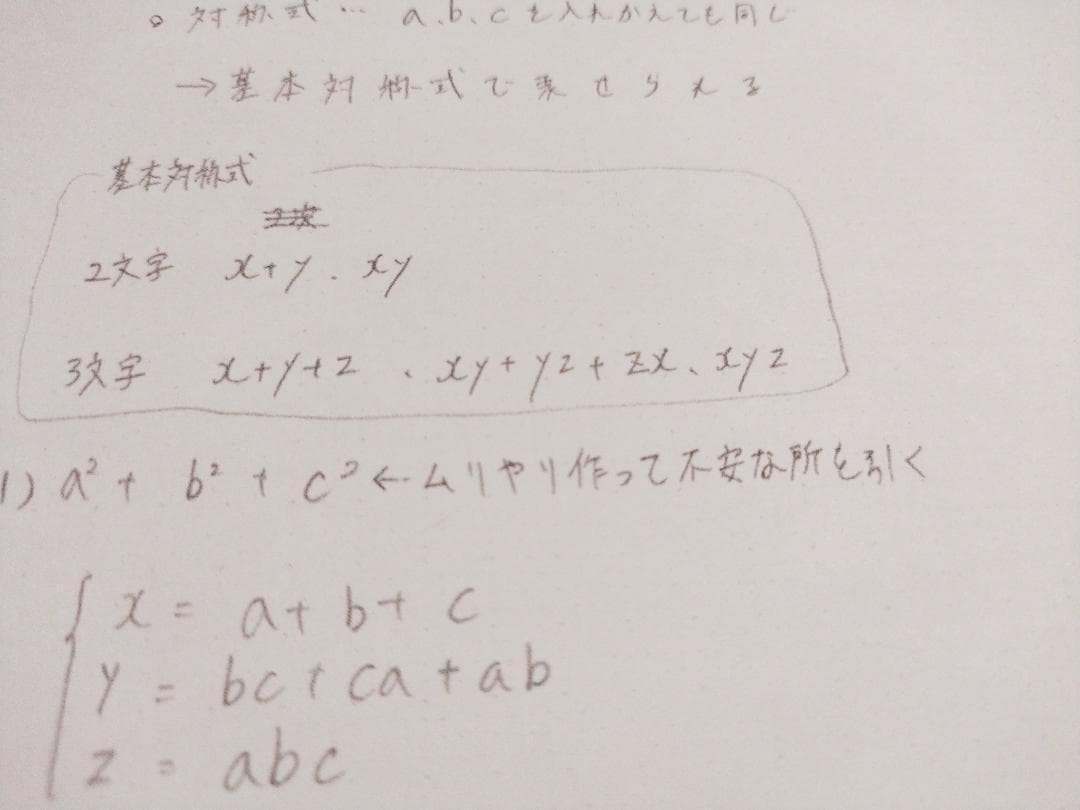 。対称式… a、b、cを入れかえても同じ
→基本対称式で表せられる
基本対称式
2文字 x+y、xy
3文字 x+y+z、xy+yz+zx、xyz
1) a²+ b²+ c²←ムリやり作って不安な所を引く
x= a+b+c
y= bc+ca+ab
z= abc